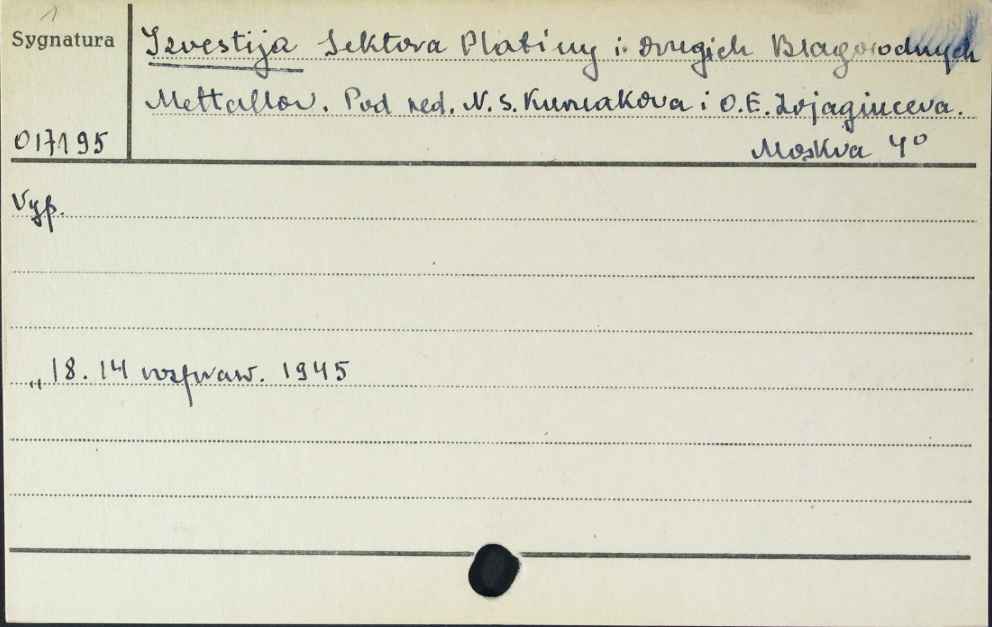 1
Sygnatura
Izvestija Sektora Platiny i drugich Blagorodnych
Mettallov. Pod red. N. S. Kurnakova i O. E. Zvjaginceva.
017195
Moskva 4°
Vyp.
„ 18. 14 rozpraw. 1945